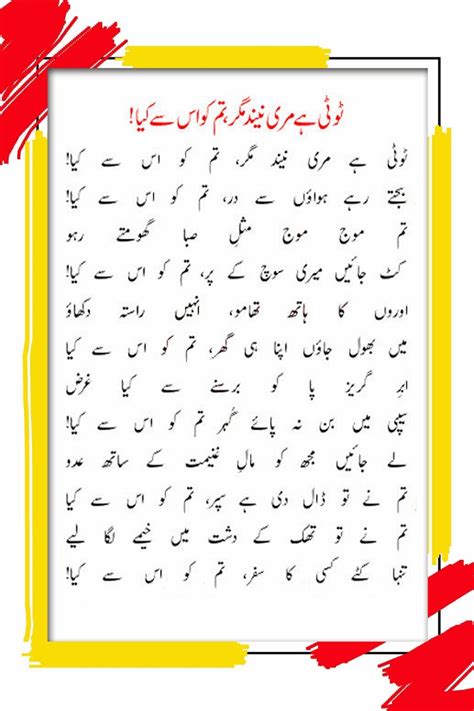 ٹوٹی ہے مری نیند مگر، تم کو اس سے کیا!
ٹوٹی ہے مری نیند مگر، تم کو اس سے کیا!
بجتے رہے ہواؤں سے در، تم کو اس سے کیا!
تم موج موج مثلِ صبا گھومتے رہو
کٹ جائیں میری سوچ کے پر، تم کو اس سے کیا!
اوروں کا ہاتھ تھامو، انہیں راستہ دکھاؤ
میں بھول جاؤں اپنا ہی گھر، تم کو اس سے کیا
ابرِ گریز پا کو برسنے سے کیا غرض
سیپی میں بن نہ پائے گُہر تم کو اس سے کیا!
لے جائیں مجھ کو مالِ غنیمت کے ساتھ عدو
تم نے تو ڈال دی ہے سپر، تم کو اس سے کیا
تم نے تو تھک کے دشت میں خیمے لگا لیے
تنہا کٹے کسی کا سفر، تم کو اس سے کیا!